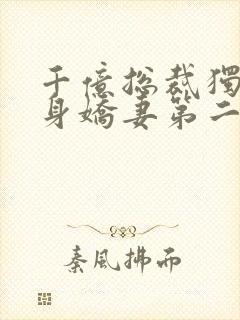 千億總裁獨
身嬌妻第二
秦風拂而